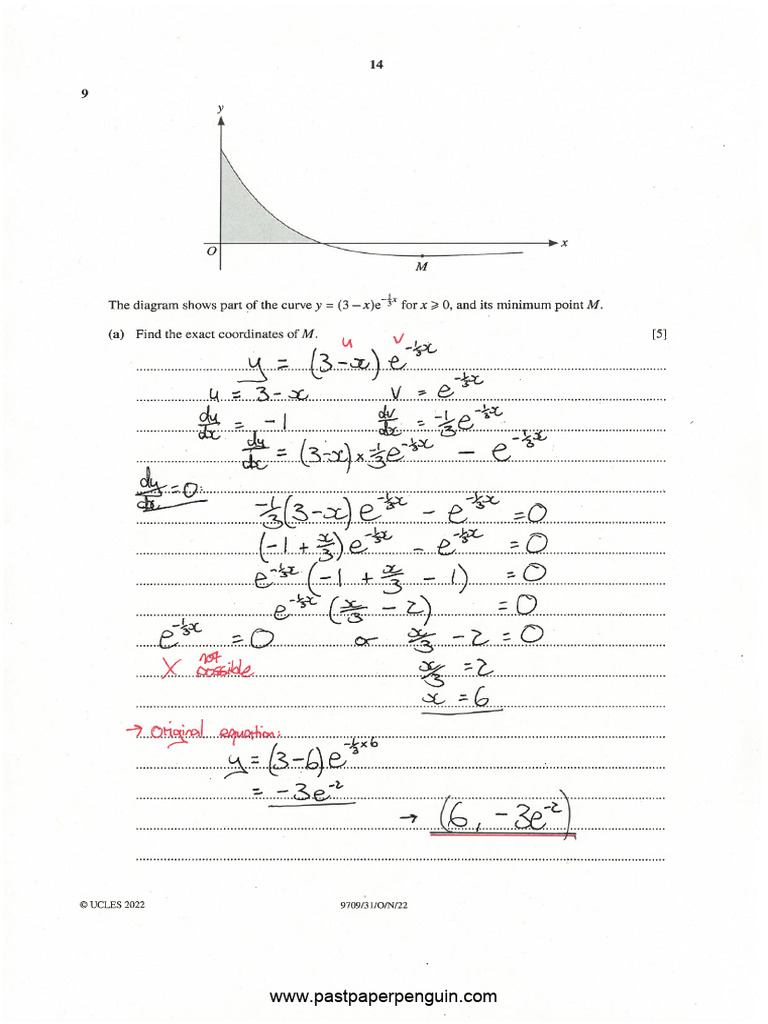 14
9
y
O
x
M
The diagram shows part of the curve y = (3 − x)e^{−\frac{1}{3}x} for x ⩾ 0, and its minimum point M.
(a) Find the exact coordinates of M. [5]
u v
y = (3-x) e^{-\frac{1}{3}x}
u = 3 - x v = e^{-\frac{1}{3}x}
\frac{du}{dx} = -1 \frac{dv}{dx} = -\frac{1}{3}e^{-\frac{1}{3}x}
\frac{dy}{dx} = (3-x) × -\frac{1}{3}e^{-\frac{1}{3}x} - e^{-\frac{1}{3}x}
\frac{dy}{dx} = 0:
-\frac{1}{3}(3-x) e^{-\frac{1}{3}x} - e^{-\frac{1}{3}x} = 0
(-1 + \frac{x}{3}) e^{-\frac{1}{3}x} - e^{-\frac{1}{3}x} = 0
e^{-\frac{1}{3}x} (-1 + \frac{x}{3} - 1) = 0
e^{-\frac{1}{3}x} (\frac{x}{3} - 2) = 0
e^{-\frac{1}{3}x} = 0 or \frac{x}{3} - 2 = 0
X not possible \frac{x}{3} = 2
x = 6
→ Original equation:
y = (3-6) e^{-\frac{1}{3}×6}
= -3e^{-2}
→ (6, -3e^{-2})
© UCLES 2022 9709/31/O/N/22
www.pastpaperpenguin.com